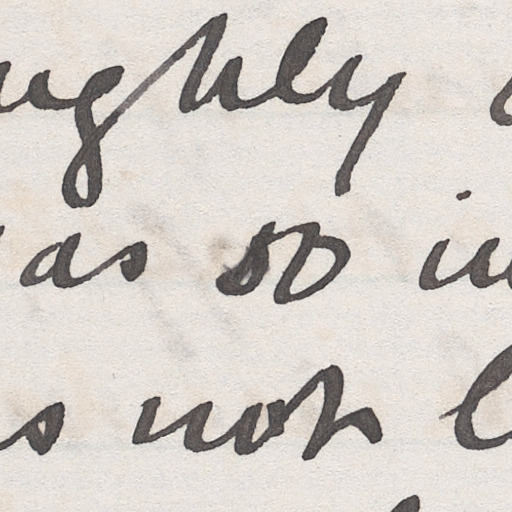 ughly
as so in
s not